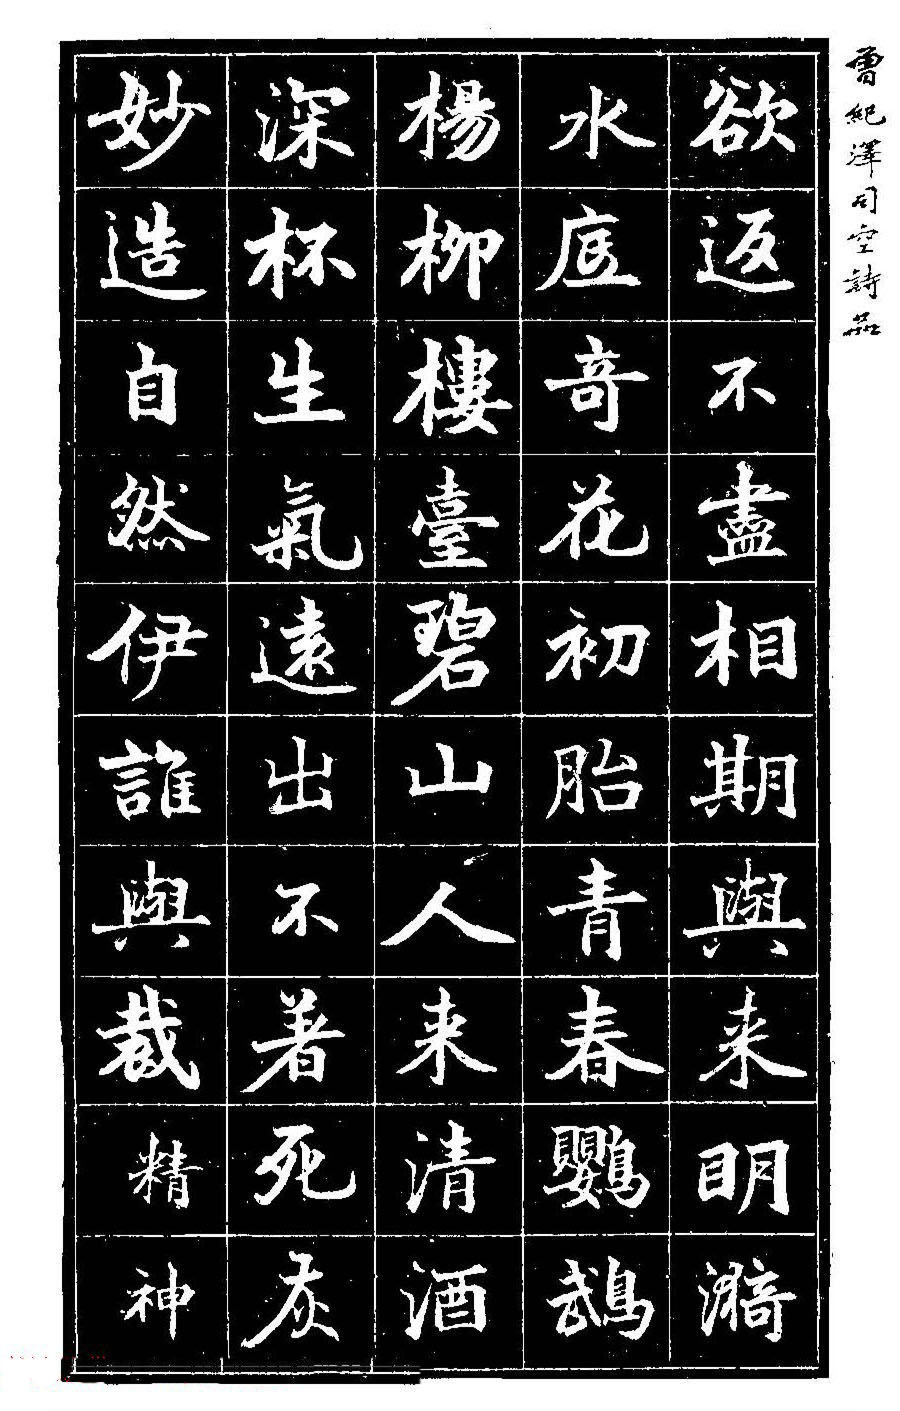 曾紀澤司空詩品
欲返不盡相期與来明漪
水底奇花初胎青春鸚鵡
楊柳樓臺碧山人来清酒
深杯生氣遠出不著死灰
妙造自然伊誰與裁精神